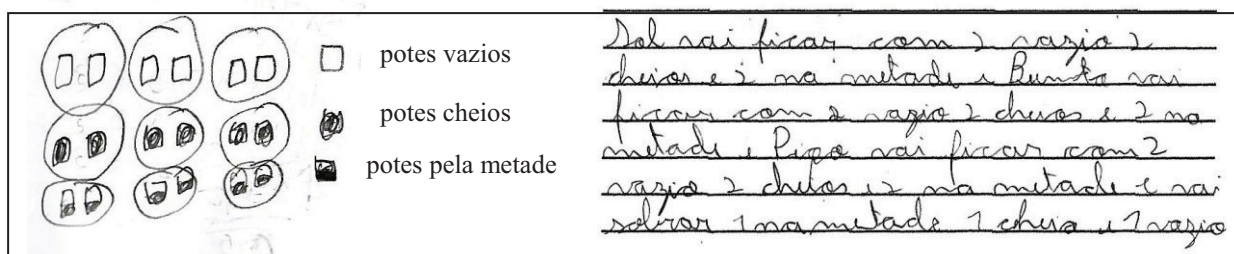 potes vazios
potes cheios
potes pela metade
Sol vai ficar com 2 vazio 2
cheios e 2 na metade e Bunita vai
ficar com 2 vazio 2 cheios e 2 na
metade e vai ficar com 2
vazio 2 cheios e 2 na metade e vai
sobrar 1 na metade 1 cheio e 1 vazio